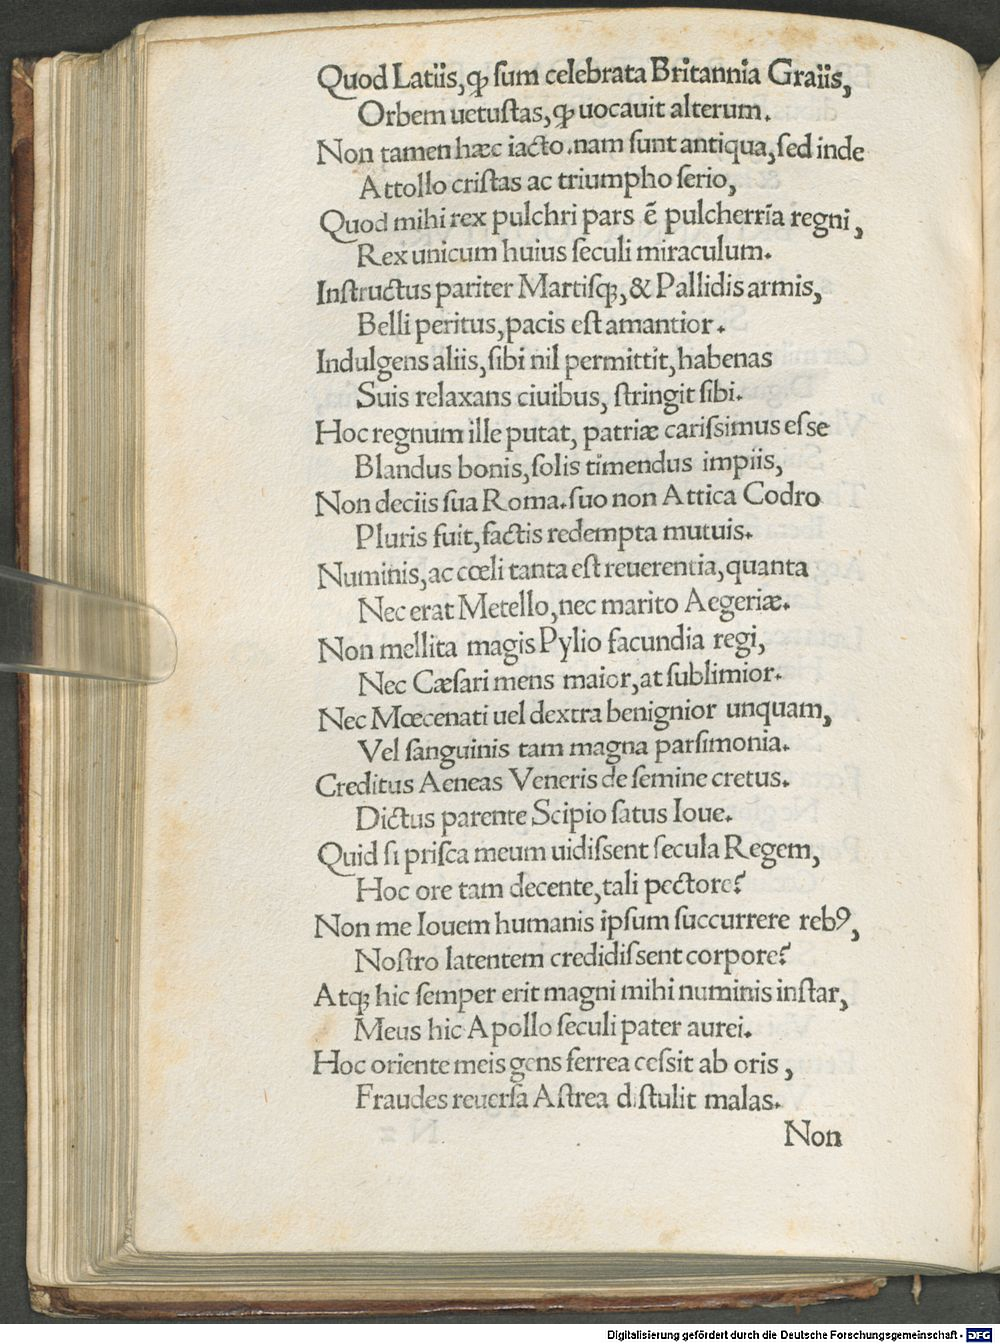 Quod Latiis, ꝙ sum celebrata Britannia Graiis,
Orbem uetustas, ꝙ uocauit alterum.
Non tamen hæc iacto. nam sunt antiqua, sed inde
Attollo cristas ac triumpho serio,
Quod mihi rex pulchri pars ē pulcherria regni,
Rex unicum huius seculi miraculum.
Instructus pariter Martisq;, & Pallidis armis,
Belli peritus, pacis est amantior.
Indulgens aliis, sibi nil permittit, habenas
Suis relaxans ciuibus, stringit sibi.
Hoc regnum ille putat, patriæ carissimus esse
Blandus bonis, solis timendus impiis,
Non deciis sua Roma. suo non Attica Codro
Pluris fuit, factis redempta mutuis.
Numinis, ac cœli tanta est reuerentia, quanta
Nec erat Metello, nec marito Aegeriæ.
Non mellita magis Pylio facundia regi,
Nec Cæsari mens maior, at sublimior.
Nec Mœcenati uel dextra benignior unquam,
Vel sanguinis tam magna parsimonia.
Creditus Aeneas Veneris de semine cretus.
Dictus parente Scipio satus Ioue.
Quid si prisca meum uidissent secula Regem,
Hoc ore tam decente, tali pectore?
Non me Iouem humanis ipsum succurrere rebꝰ,
Nostro latentem credidissent corpore?
Atq; hic semper erit magni mihi numinis instar,
Meus hic Apollo seculi pater aurei.
Hoc oriente meis gens ferrea cessit ab oris,
Fraudes reuersa Astrea distulit malas.
Non
Digitalisierung gefördert durch die Deutsche Forschungsgemeinschaft - DFG